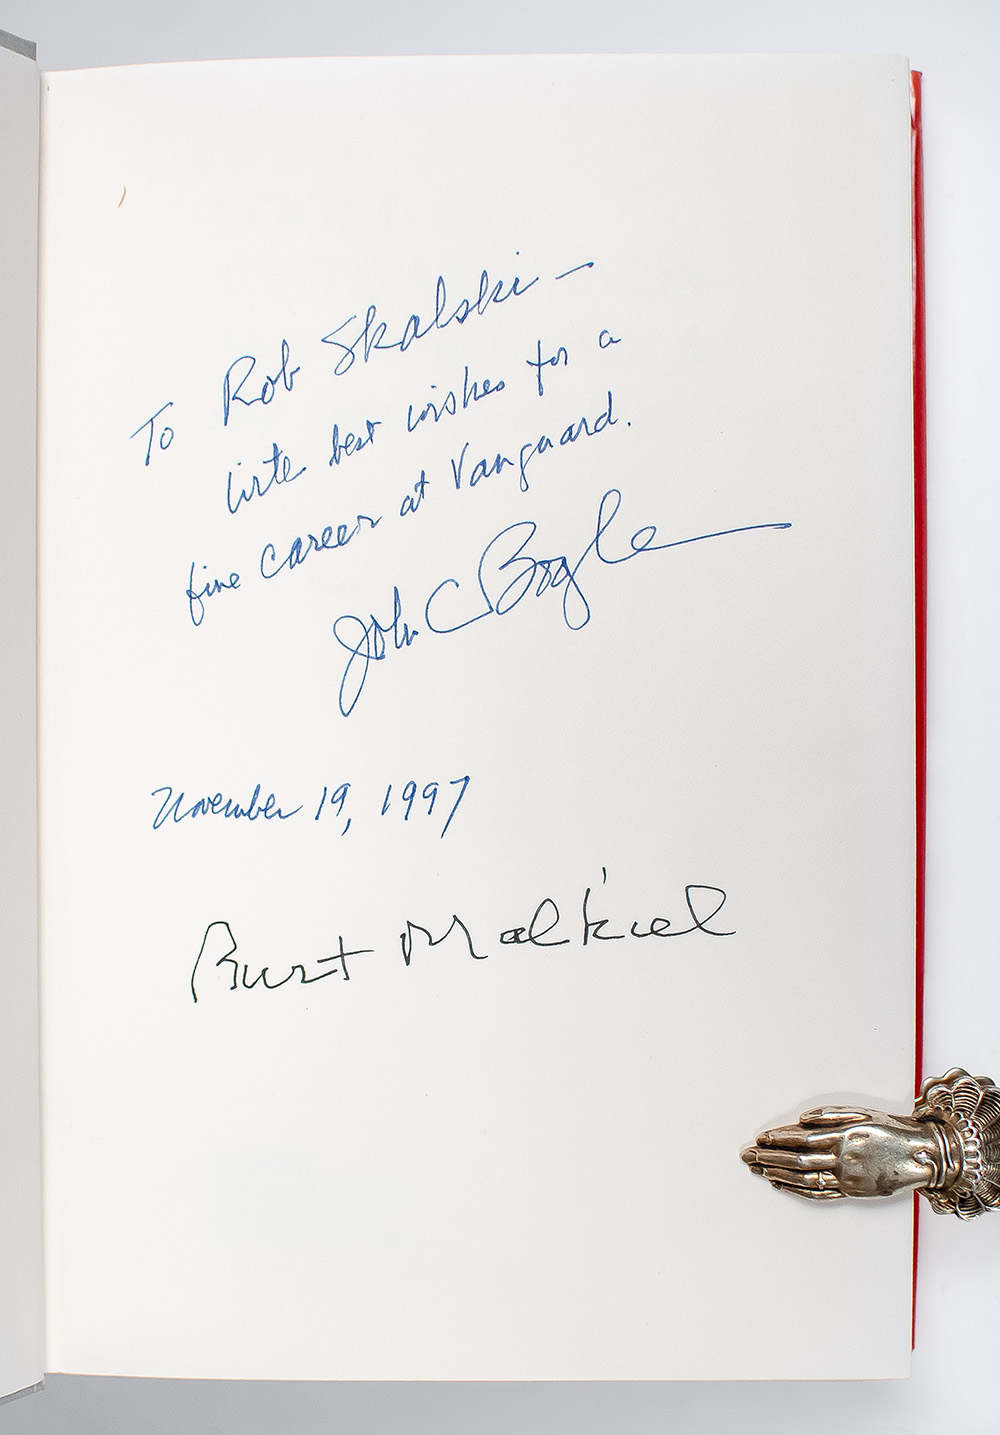 To Rob Skalski —
With best wishes for a
fine career at Vanguard.
John C Bogle
November 19, 1997
Burt Malkiel